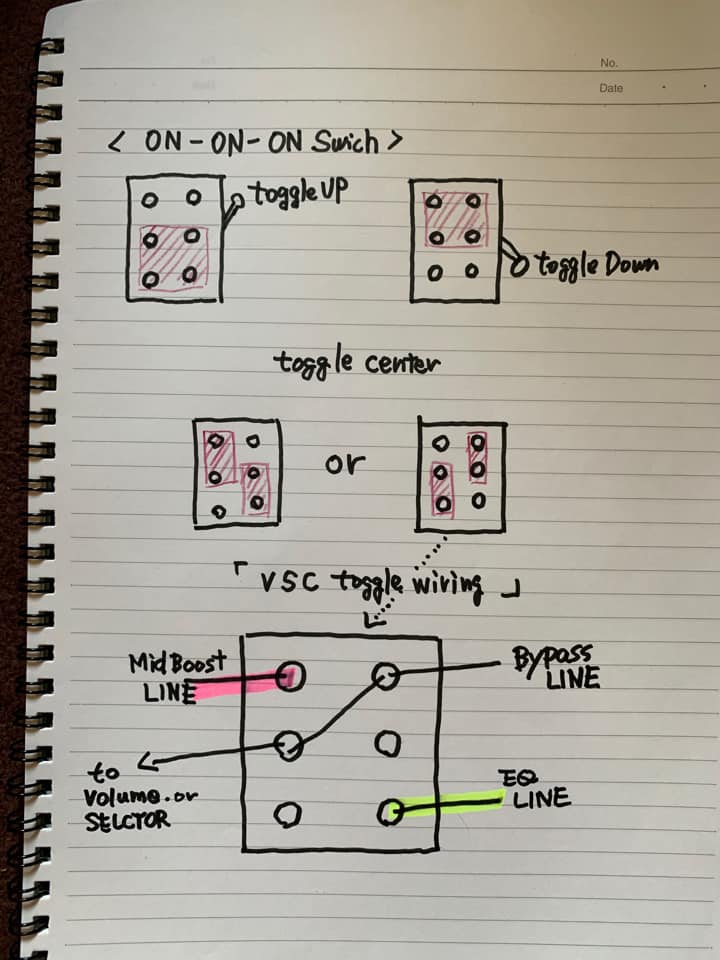 No.
Date
< ON-ON-ON Swich >
toggle UP
toggle Down
toggle center
or
「VSC toggle wiring」
Mid Boost
LINE
Bypass
LINE
to
Volume.or
SELCTOR
EQ
LINE